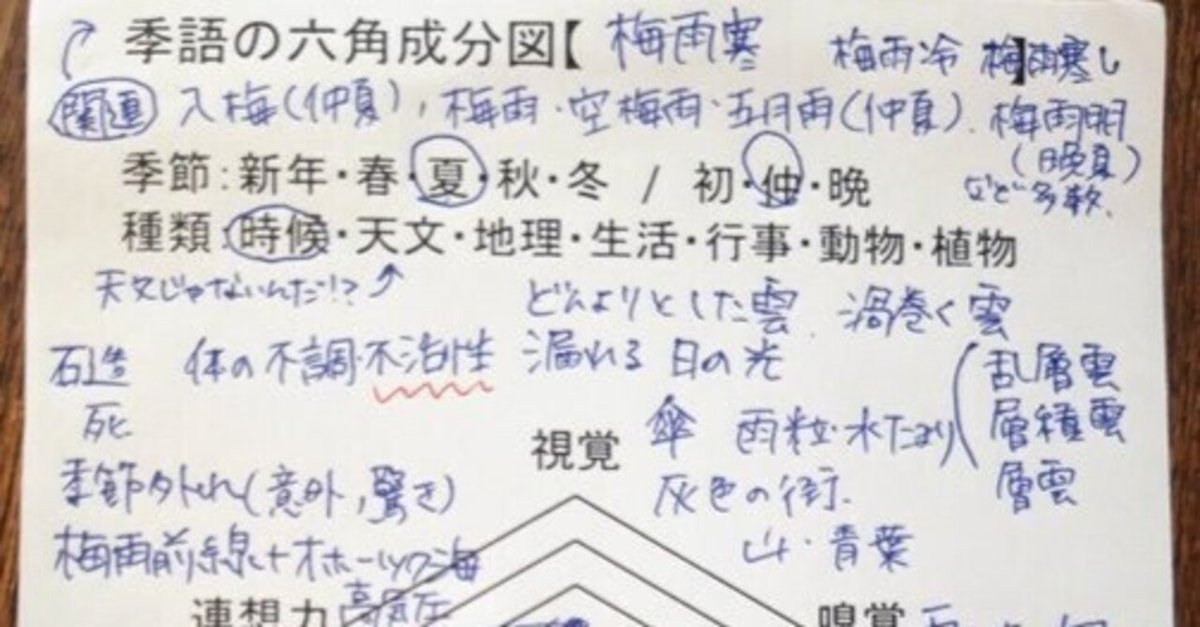 季語の六角成分図【梅雨寒 梅雨冷 梅雨寒し】
関連 入梅(仲夏)、梅雨・空梅雨・五月雨(仲夏)、梅雨明(晩夏)
など多数、
季節:新年・春・夏・秋・冬 / 初・仲・晩
種類:時候・天文・地理・生活・行事・動物・植物
天文じゃないんだ!?
どんよりとした雲、渦巻く雲
石造 体の不調・不活性 漏れる日の光
乱層雲
層積雲
層雲
死
傘 雨粒・水たまり
視覚
季節外れ(意外,驚き)
灰色の街、
梅雨前線 オホーツク海
高気圧
山・青葉
連想力
嗅覚